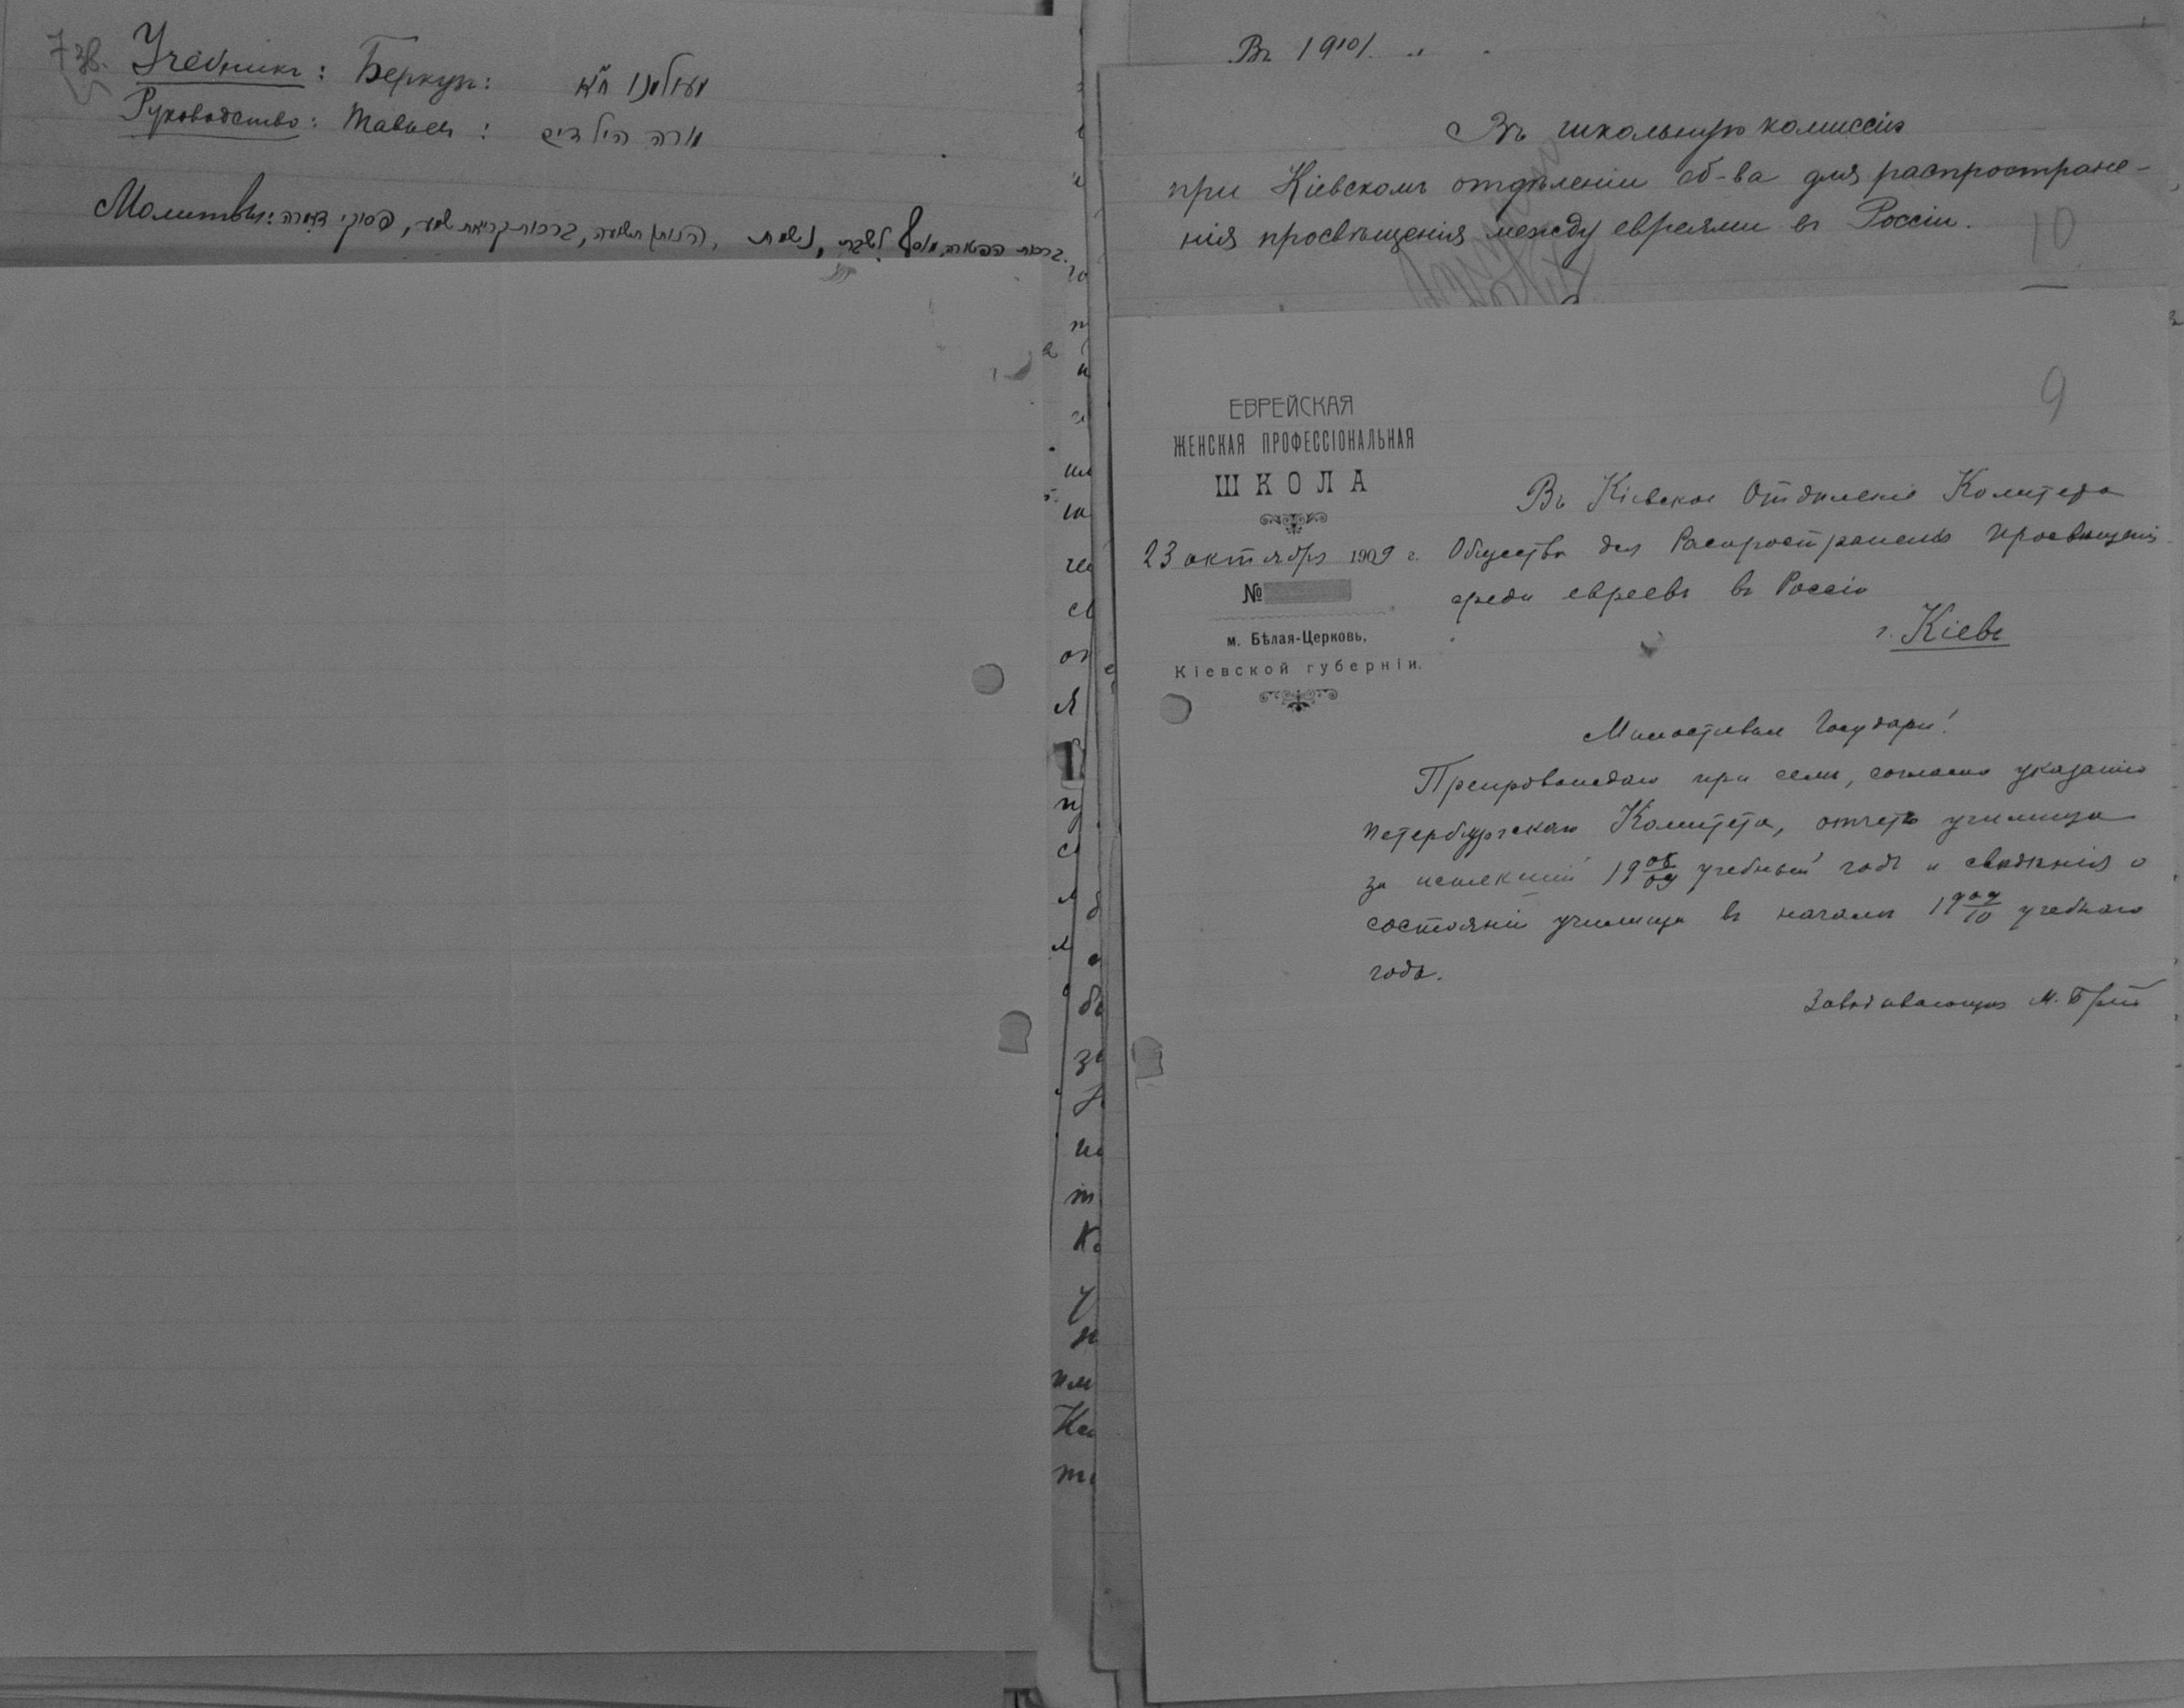 7 зв.
Учебникъ: Беркузъ:
Руководство: Тавьевъ: מורה הילדים
Молитвы: פסוקי דזמרה, ברכות קריאת שמע, הנותן תשועה, נשמת, מוסף לשבת, ברכות הפטורה.
Въ 1910 г.
Въ школьную комиссію
при Кіевскомъ отдѣленіи об-ва для распростране-
нія просвѣщенія между евреями въ Россіи.
10
9
ЕВРЕЙСКАЯ
ЖЕНСКАЯ ПРОФЕССІОНАЛЬНАЯ
ШКОЛА
23 октября 1909 г.
№
м. Бѣлая-Церковь,
Кіевской губерніи.
Въ Кіевское Отдѣленіе Комитета
Общества для Распространенія Просвѣщенія
среди евреевъ въ Россіи
г. Кіевъ
Милостивые Государи!
Препровождаю при семъ, согласно указанію
Петербургскаго Комитета, отчетъ училища
за истекшій 1908/09 учебный годъ и свѣдѣнія о
состояніи училища въ началѣ 1909/10 учебнаго
года.
Завѣдывающая М.